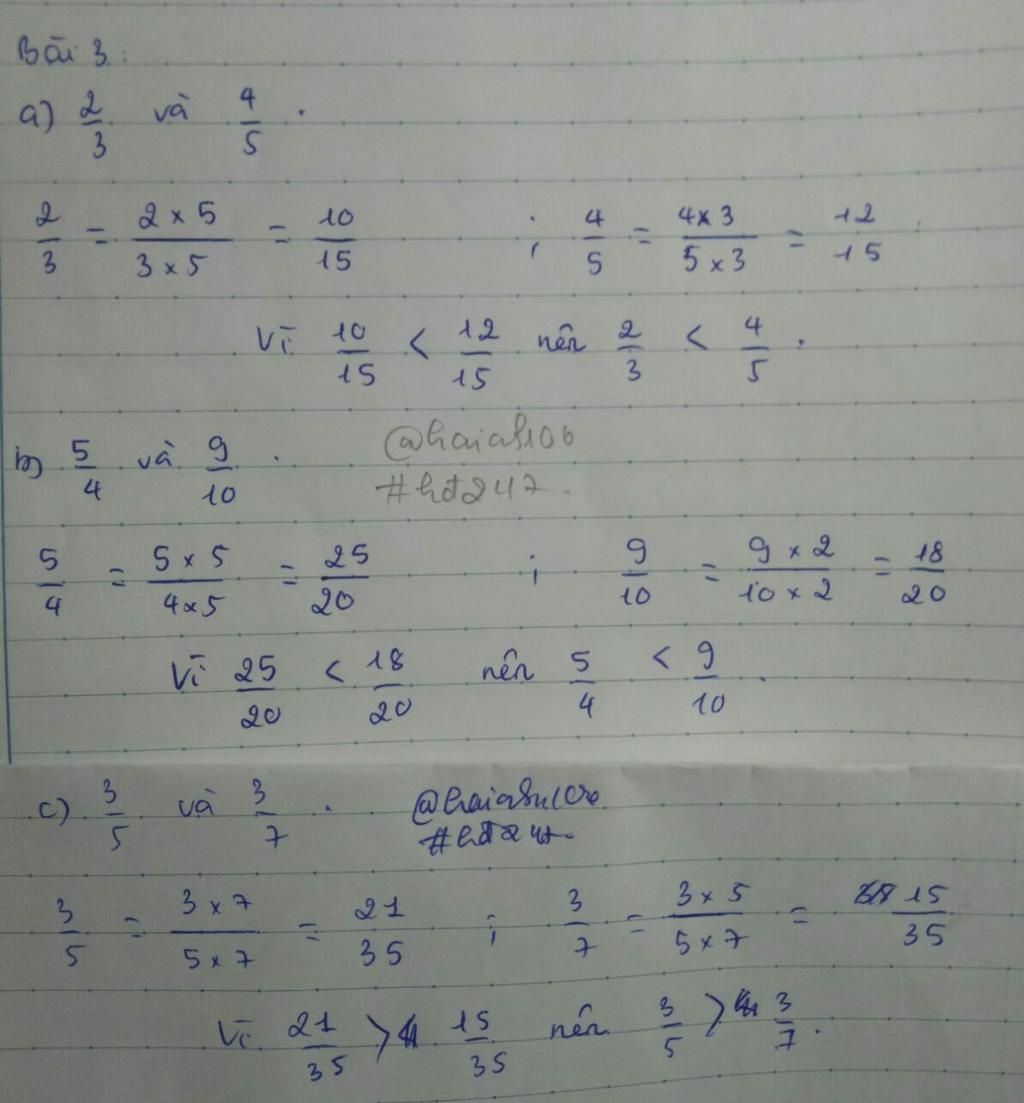 Bài 3:
a) 2/3 và 4/5.
2/3 = 2 x 5 / 3 x 5 = 10/15 ; 4/5 = 4 x 3 / 5 x 3 = 12/15
Vì 10/15 < 12/15 nên 2/3 < 4/5.
b) 5/4 và 9/10.
#hđ247.
5/4 = 5 x 5 / 4 x 5 = 25/20 ; 9/10 = 9 x 2 / 10 x 2 = 18/20
Vì 25/20 < 18/20 nên 5/4 < 9/10.
c) 3/5 và 3/7.
#hđ247.
3/5 = 3 x 7 / 5 x 7 = 21/35 ; 3/7 = 3 x 5 / 5 x 7 = 15/35
Vì 21/35 > 15/35 nên 3/5 > 3/7.